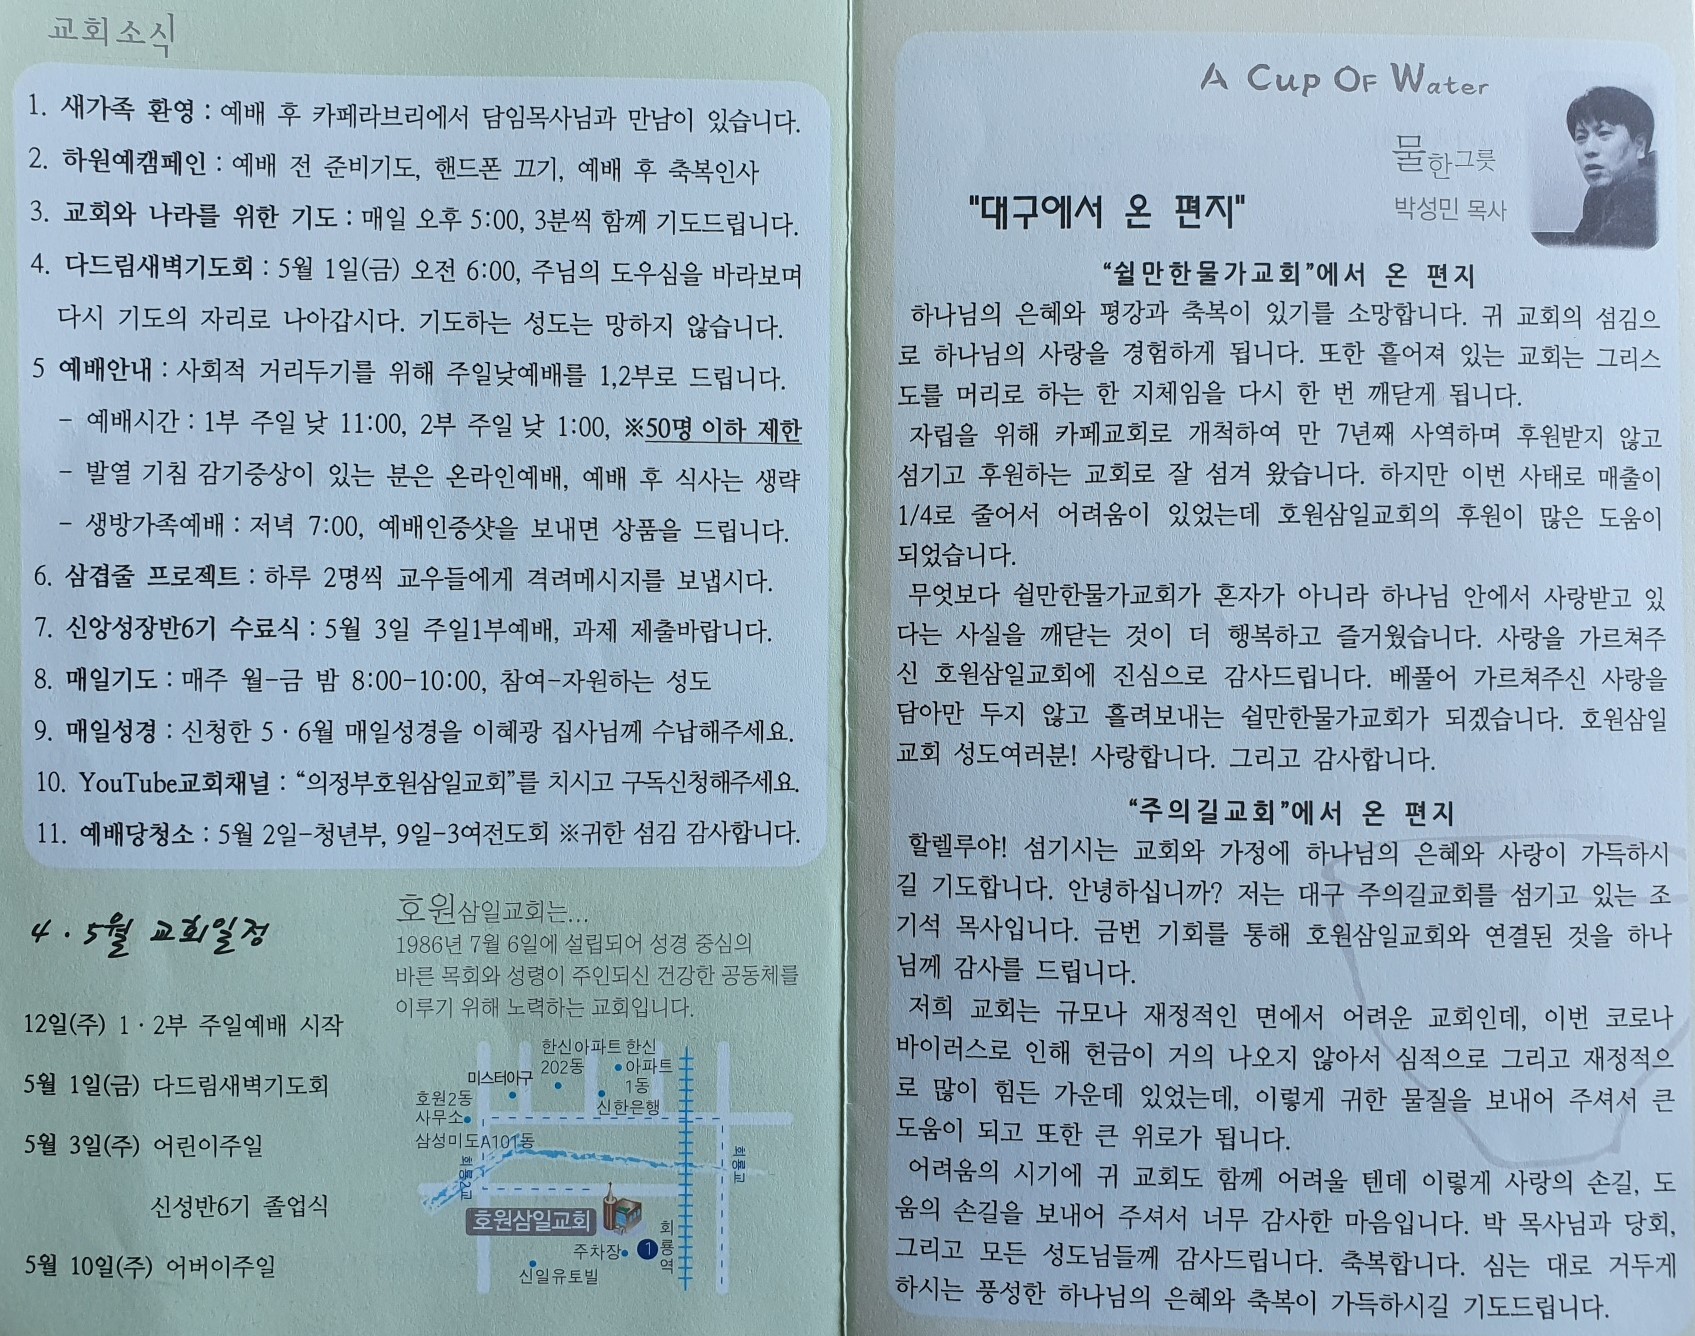 교회소식
1. 새가족 환영 : 예배 후 카페라브리에서 담임목사님과 만남이 있습니다.
2. 하원예캠페인 : 예배 전 준비기도, 핸드폰 끄기, 예배 후 축복인사
3. 교회와 나라를 위한 기도 : 매일 오후 5:00, 3분씩 함께 기도드립니다.
4. 다드림새벽기도회 : 5월 1일(금) 오전 6:00, 주님의 도우심을 바라보며
다시 기도의 자리로 나아갑시다. 기도하는 성도는 망하지 않습니다.
5 예배안내 : 사회적 거리두기를 위해 주일낮예배를 1,2부로 드립니다.
- 예배시간 : 1부 주일 낮 11:00, 2부 주일 낮 1:00, ※50명 이하 제한
- 발열 기침 감기증상이 있는 분은 온라인예배, 예배 후 식사는 생략
- 생방가족예배 : 저녁 7:00, 예배인증샷을 보내면 상품을 드립니다.
6. 삼겹줄 프로젝트 : 하루 2명씩 교우들에게 격려메시지를 보냅시다.
7. 신앙성장반6기 수료식 : 5월 3일 주일1부예배, 과제 제출바랍니다.
8. 매일기도 : 매주 월-금 밤 8:00-10:00, 참여-자원하는 성도
9. 매일성경 : 신청한 5·6월 매일성경을 이혜광 집사님께 수납해주세요.
10. YouTube교회채널 : “의정부호원삼일교회”를 치시고 구독신청해주세요.
11. 예배당청소 : 5월 2일-청년부, 9일-3여전도회 ※귀한 섬김 감사합니다.
4·5월 교회일정
12일(주) 1·2부 주일예배 시작
5월 1일(금) 다드림새벽기도회
5월 3일(주) 어린이주일
신성반6기 졸업식
5월 10일(주) 어버이주일
호원삼일교회는...
1986년 7월 6일에 설립되어 성경 중심의
바른 목회와 성령이 주인되신 건강한 공동체를
이루기 위해 노력하는 교회입니다.
한신아파트 한신
202동 아파트
미스터아구 1동
호원2동 신한은행
사무소
삼성미도A101동
회룡2교
회룡교
호원삼일교회
주차장
1
회룡역
신일유토빌
A Cup Of Water
물한그릇
박성민 목사
"대구에서 온 편지"
“쉴만한물가교회”에서 온 편지
하나님의 은혜와 평강과 축복이 있기를 소망합니다. 귀 교회의 섬김으
로 하나님의 사랑을 경험하게 됩니다. 또한 흩어져 있는 교회는 그리스
도를 머리로 하는 한 지체임을 다시 한 번 깨닫게 됩니다.
자립을 위해 카페교회로 개척하여 만 7년째 사역하며 후원받지 않고
섬기고 후원하는 교회로 잘 섬겨 왔습니다. 하지만 이번 사태로 매출이
1/4로 줄어서 어려움이 있었는데 호원삼일교회의 후원이 많은 도움이
되었습니다.
무엇보다 쉴만한물가교회가 혼자가 아니라 하나님 안에서 사랑받고 있
다는 사실을 깨닫는 것이 더 행복하고 즐거웠습니다. 사랑을 가르쳐주
신 호원삼일교회에 진심으로 감사드립니다. 베풀어 가르쳐주신 사랑을
담아만 두지 않고 흘려보내는 쉴만한물가교회가 되겠습니다. 호원삼일
교회 성도여러분! 사랑합니다. 그리고 감사합니다.
“주의길교회”에서 온 편지
할렐루야! 섬기시는 교회와 가정에 하나님의 은혜와 사랑이 가득하시
길 기도합니다. 안녕하십니까? 저는 대구 주의길교회를 섬기고 있는 조
기석 목사입니다. 금번 기회를 통해 호원삼일교회와 연결된 것을 하나
님께 감사를 드립니다.
저희 교회는 규모나 재정적인 면에서 어려운 교회인데, 이번 코로나
바이러스로 인해 헌금이 거의 나오지 않아서 심적으로 그리고 재정적으
로 많이 힘든 가운데 있었는데, 이렇게 귀한 물질을 보내어 주셔서 큰
도움이 되고 또한 큰 위로가 됩니다.
어려움의 시기에 귀 교회도 함께 어려울 텐데 이렇게 사랑의 손길, 도
움의 손길을 보내어 주셔서 너무 감사한 마음입니다. 박 목사님과 당회,
그리고 모든 성도님들께 감사드립니다. 축복합니다. 심는 대로 거두게
하시는 풍성한 하나님의 은혜와 축복이 가득하시길 기도드립니다.